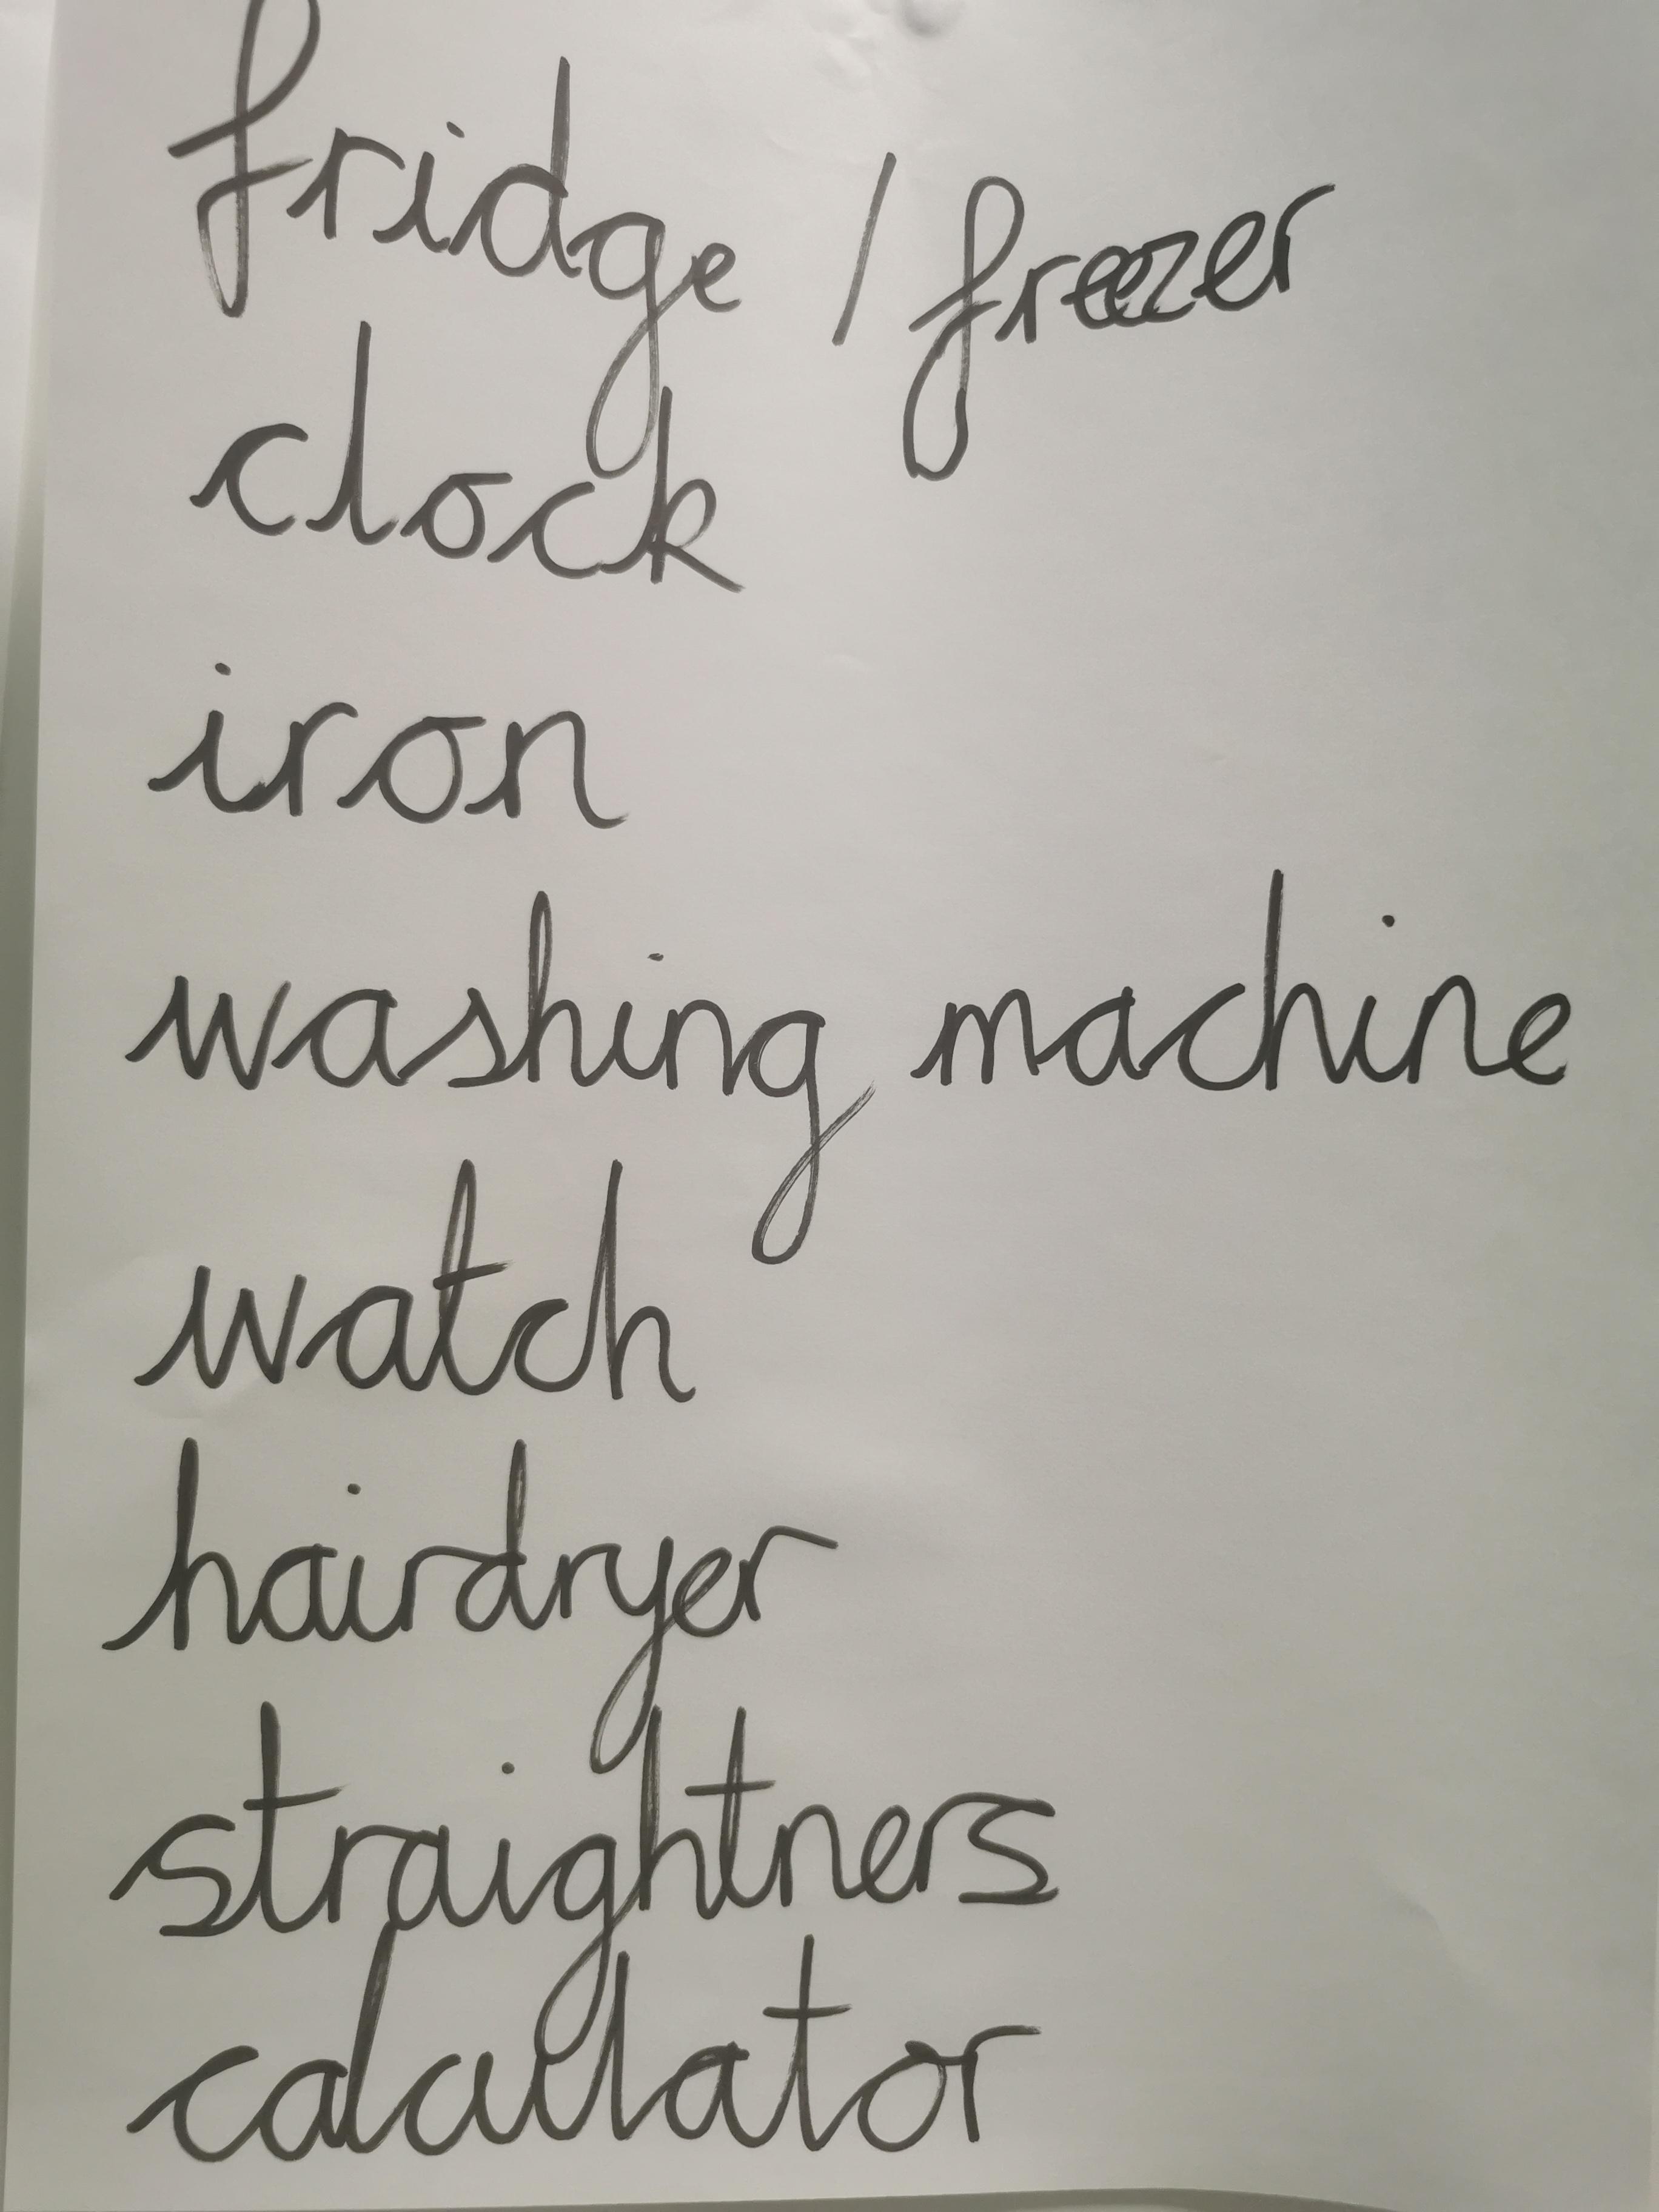 fridge / freezer
clock
iron
washing machine
watch
hairdryer
straightners
calculator